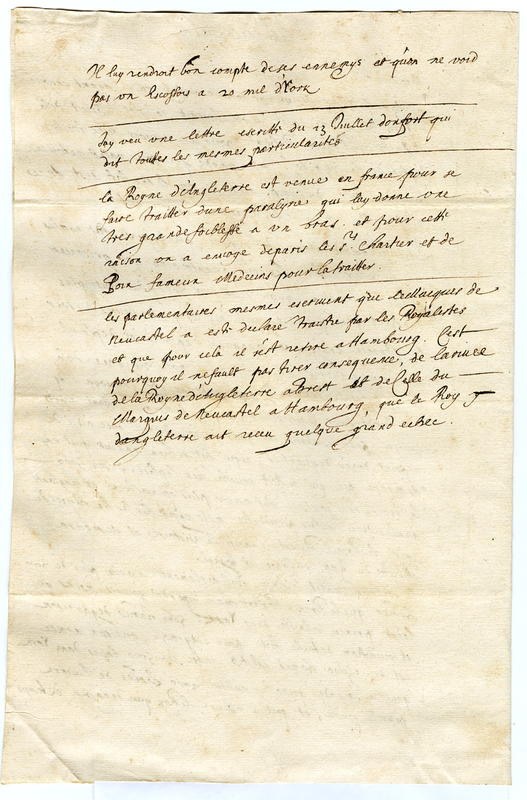 Il luy rendroit bon compte de ses ennemys et qu'on ne void
pas un Escossois a 20 mil d'York
Jay veu une lettre escritte du 13 Juillet d'onfort qui
dit toutes les mesmes particularités
La Royne d'Angleterre est venue en france pour se
faire traitter d'une paralysie qui luy donne une
tres grande foiblesse a un bras. et pour cette
raison on a envoyé de paris les Srs Chartier et de
Poix fameux Medecins pour la traitter.
les parlementaires mesmes escrivent que le Marques de
Neucastel a esté declaré traistre par les Royalistes
et que pour cela il s'est retiré a Hambourg. C'est
pourquoy il ne fault pas tirer consequence, de larivee
de la Royne d'Angleterre a brest et de celle du
Marquis de Neucastel a Hambourg, que le Roy
dangleterre ait receu quelque grand echec.